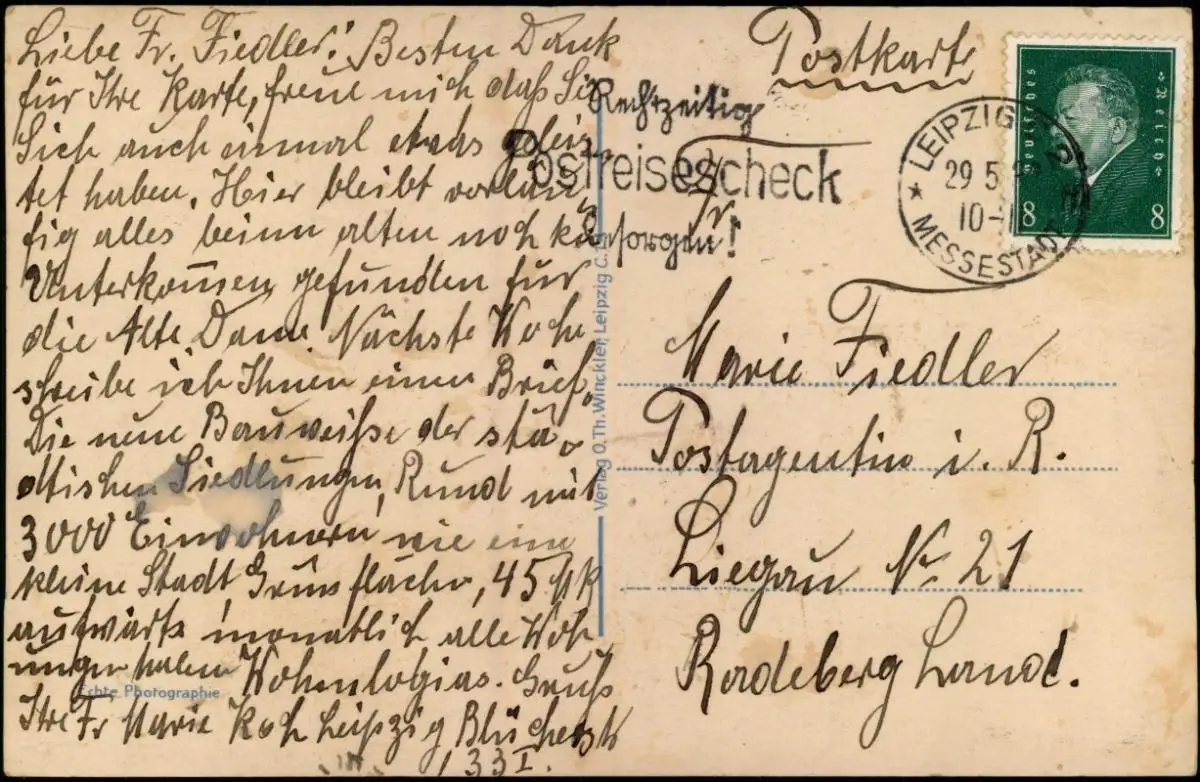 Liebe Fr. Fiedler! Besten Dank
für Ihre Karte, freue mich daß Sie
Sich auch einmal etwas gelei-
tet haben. Hier bleibt vorläu-
fig alles beim alten noch kein
Unterkommen gefunden für
die Alte Dame. Nächste Woche
schreibe ich Ihnen einen Brief.
Die neue Bauweiße der stä-
dtischen Siedlungen, Rund mit
3000 Einwohnern, wie eine
kleine Stadt, Grünfläche, 45 Mk
aufwärts monatlich alle Woh
ungen haben Wohnlogias. Gruß
Ihre Fr Marie Koch Leipzig Blücherstr
133 I.
Echte Photographie
Verlag O.Th.Winckler, Leipzig C.1
Postkarte
Rechtzeitig
Postreisescheck
besorgen!
LEIPZIG
29 5
10-1
MESSESTADT
Deutsches
Reich
8 8
Fr
Marie Fiedler
Postagentin i. R.
Liegau Nr 21
Radeberg Land.